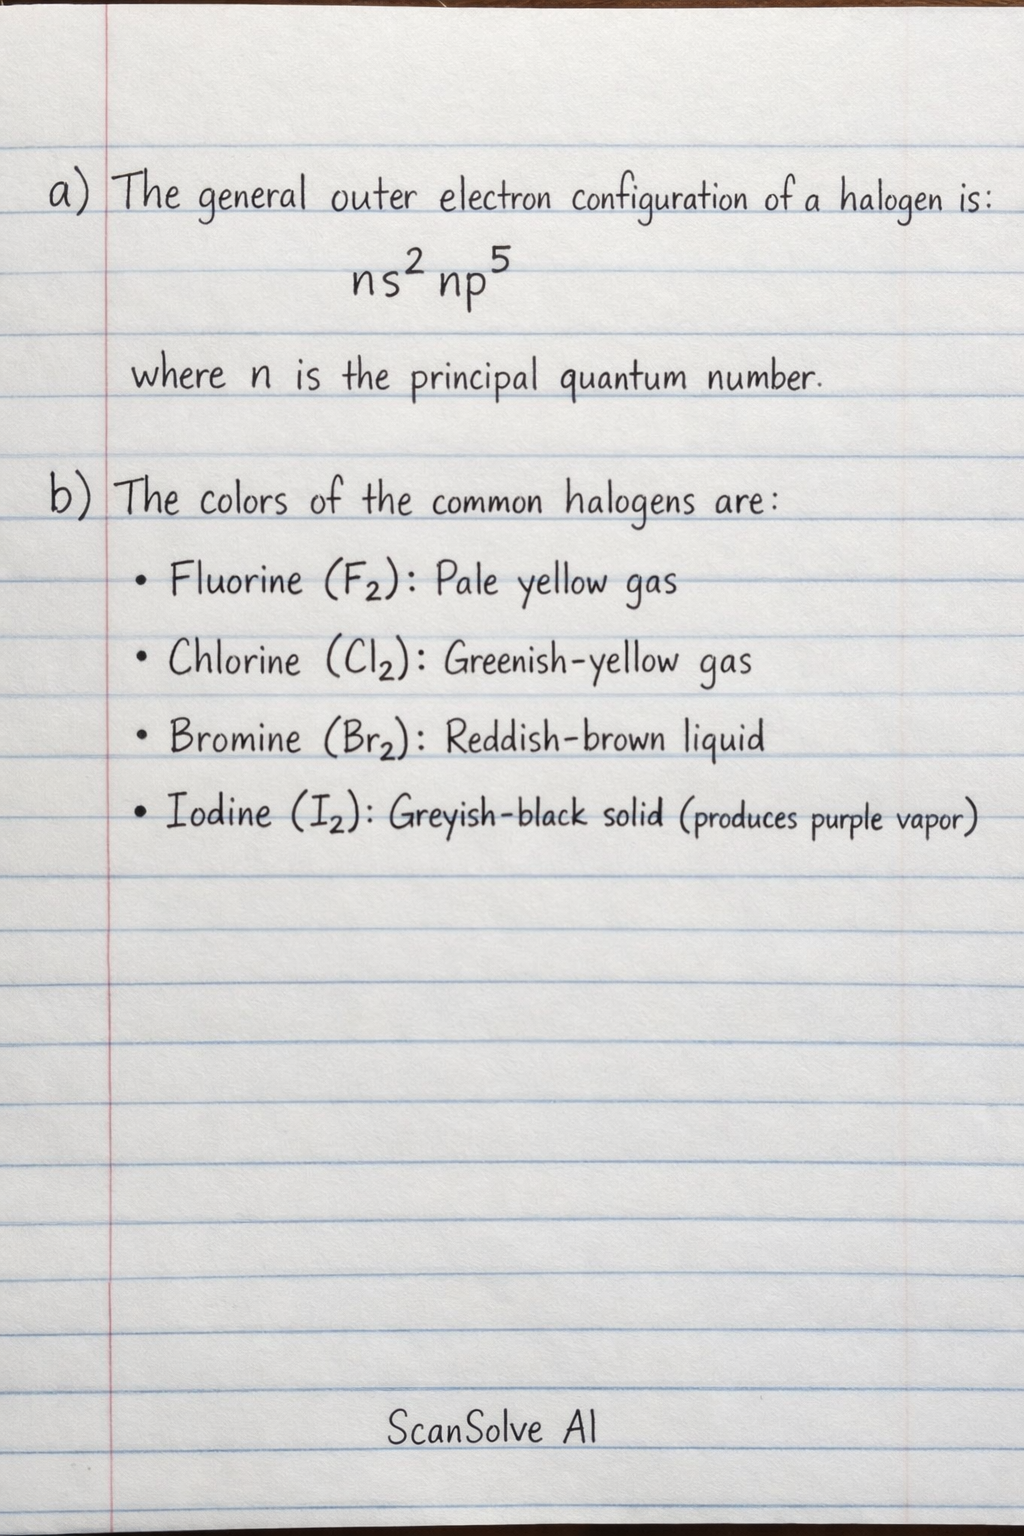 a) The general outer electron configuration of a halogen is:
ns² np⁵
where n is the principal quantum number.
b) The colors of the common halogens are:
• Fluorine (F₂): Pale yellow gas
• Chlorine (Cl₂): Greenish-yellow gas
• Bromine (Br₂): Reddish-brown liquid
• Iodine (I₂): Greyish-black solid (produces purple vapor)
ScanSolve AI